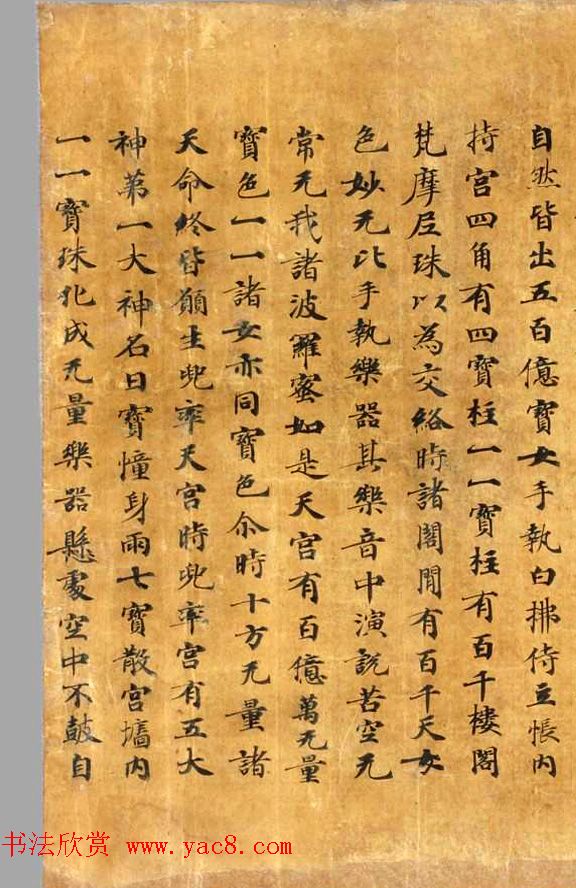 自然皆出五百億寶女手執白拂侍立帳内
持宮四角有四寶柱一一寶柱有百千樓閣
梵摩尼珠以為交絡時諸閣間有百千天女
色妙无比手執樂器其樂音中演說苦空无
常无我諸波羅蜜如是天宮有百億萬无量
寶色一一諸女亦同寶色尒時十方无量諸
天命終皆願生兜率天宮時兜率宮有五大
神苐一大神名曰寶憧身雨七寶散宮墻内
一一寶珠化成无量樂器懸處空中不鼓自
书法欣赏 www.yac8.com